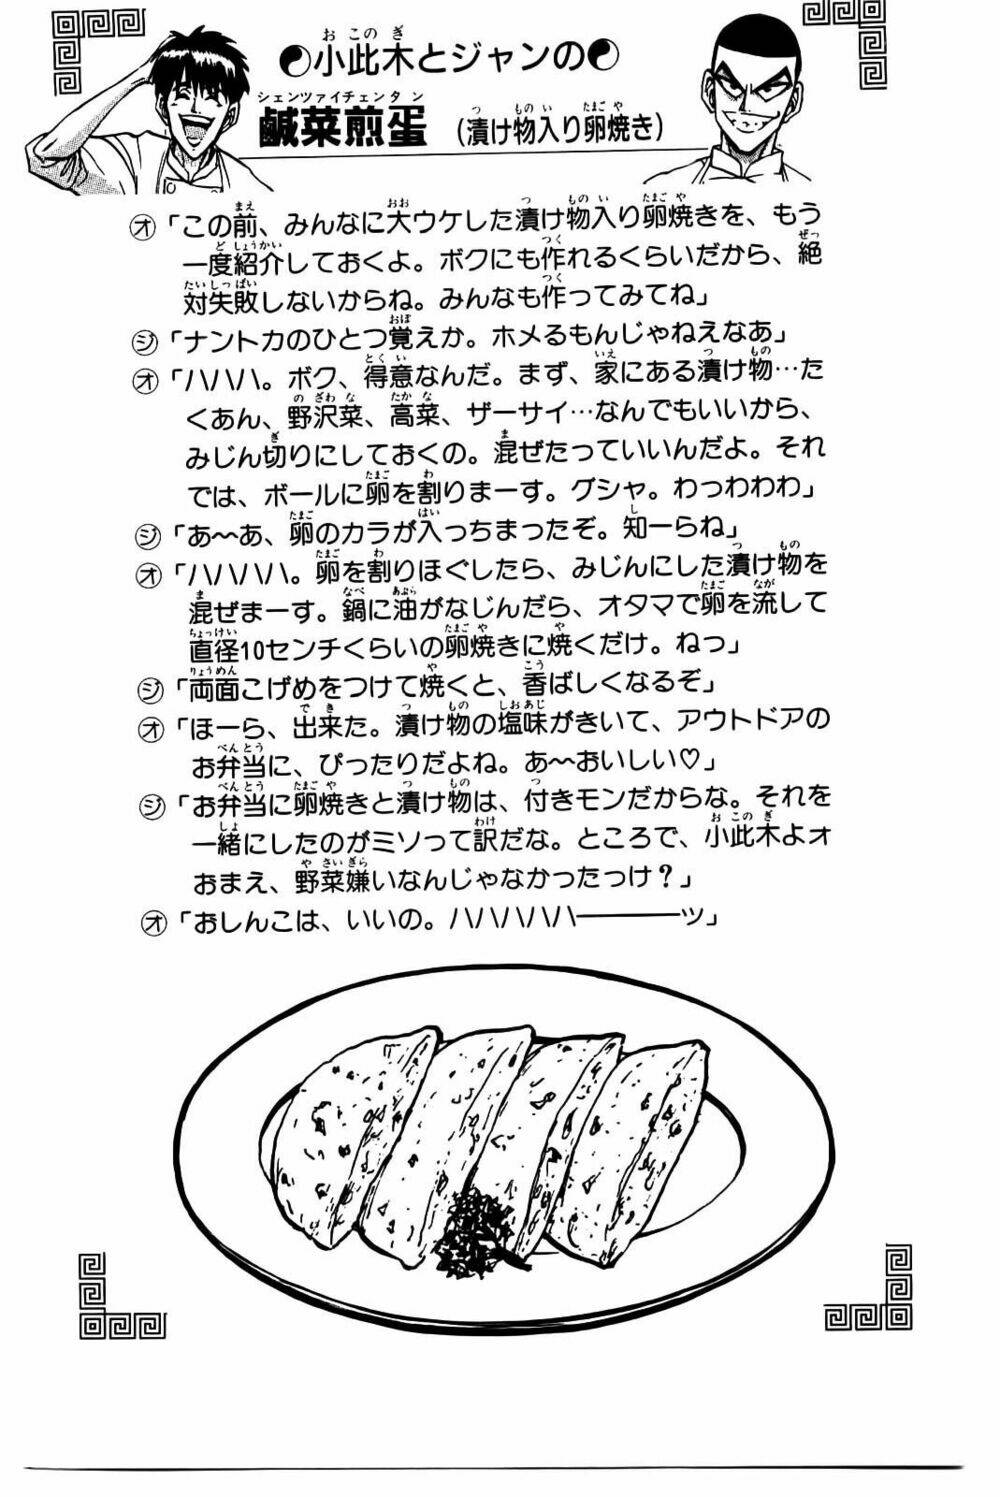 小此木とジャンの
鹹菜煎蛋(漬け物入り卵焼き)
オ「この前、みんなに大ウケした漬け物入り卵焼きを、もう
一度紹介しておくよ。ボクにも作れるくらいだから、絶
対失敗しないからね。みんなも作ってみてね」
ジ「ナントカのひとつ覚えか。ホメるもんじゃねえなあ」
オ「ハハハ。ボク、得意なんだ。まず、家にある漬け物…た
くあん、野沢菜、高菜、ザーサイ…なんでもいいから、
みじん切りにしておくの。混ぜたっていいんだよ。それ
では、ボールに卵を割りまーす。グシャ。わっわわわ」
ジ「あ〜あ、卵のカラが入っちまったぞ。知ーらね」
オ「ハハハハ。卵を割りほぐしたら、みじんにした漬け物を
混ぜまーす。鍋に油がなじんだら、オタマで卵を流して
直径10センチくらいの卵焼きに焼くだけ。ねっ」
ジ「両面こげめをつけて焼くと、香ばしくなるぞ」
オ「ほーら、出来た。漬け物の塩味がきいて、アウトドアの
お弁当に、ぴったりだよね。あ〜おいしい♡」
ジ「お弁当に卵焼きと漬け物は、付きモンだからな。それを
一緒にしたのがミソって訳だな。ところで、小此木よォ
おまえ、野菜嫌いなんじゃなかったっけ?」
オ「おしんこは、いいの。ハハハハハ――――ッ」